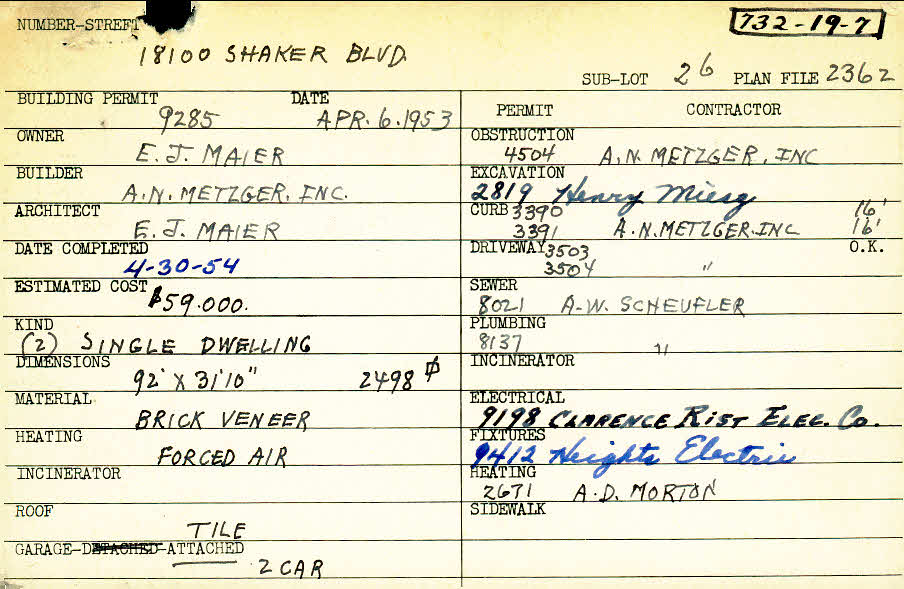 732-19-7
NUMBER-STREET
18100 SHAKER BLVD.
SUB-LOT 26 PLAN FILE 2362
BUILDING PERMIT DATE
9285 APR. 6. 1953
OWNER
E. J. MAIER
BUILDER
A.N. METZGER, INC.
ARCHITECT
E. J. MAIER
DATE COMPLETED
4-30-54
ESTIMATED COST
$59.000.
KIND
(2) SINGLE DWELLING
DIMENSIONS
92' X 31'10" 2498 ⏍
MATERIAL
BRICK VENEER
HEATING
FORCED AIR
INCINERATOR
ROOF
TILE
GARAGE-DETACHED-ATTACHED
2 CAR
PERMIT CONTRACTOR
OBSTRUCTION
4504 A.N. METZGER, INC
EXCAVATION
2819 Henry Miesz
CURB 3390 16'
3391 A.N. METZGER. INC 16'
DRIVEWAY 3503 O.K.
3504 "
SEWER
8021 A.W. SCHEUFLER
PLUMBING
8137 "
INCINERATOR
ELECTRICAL
9198 CLARENCE RIST ELEC. Co.
FIXTURES
9412 Heights Electric
HEATING
2671 A.D. MORTON
SIDEWALK